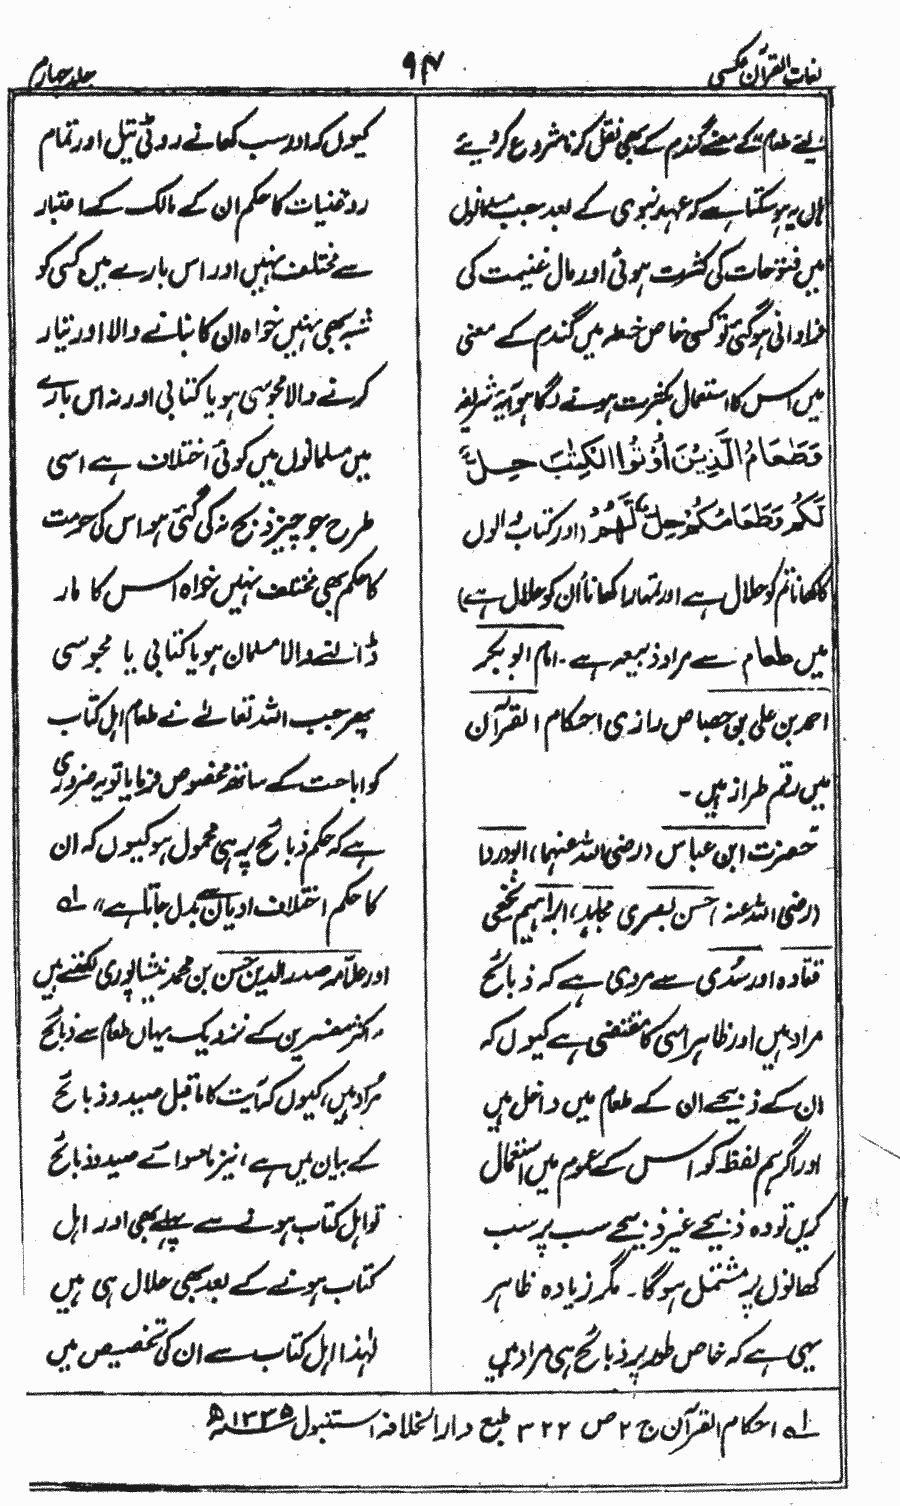 لغات القرآن مکسی
۹۴
جلد چہارم
لئے طعام کے معنے گندم کے بھی نقل کرنا شروع کردیئے
ہاں یہ ہوسکتا ہے کہ عہد نبوی کے بعد جب مسلمانوں
میں فتوحات کی کثرت ہوئی اور مال غنیمت کی
فراوانی ہوگئی تو کسی خاص خطہ میں گندم کے معنی
میں اس کا استعمال بکثرت ہونے لگا ہو آیۃ شریفہ
وَطَعَامُ الَّذِیْنَ اُوْتُوا الْکِتٰبَ حِلٌّ
لَّکُمْ وَطَعَامُکُمْ حِلٌّ لَّهُمْ (اور کتاب والوں
کا کھانا تم کو حلال ہے اور تمہارا کھانا اُن کو حلال ہے)
میں طعام سے مراد ذبیحہ ہے۔ امام ابو بکر
احمد بن علی بن جصاص رازی احکام القرآن
میں رقم طراز ہیں۔
حضرت ابن عباس (رضی اللہ عنہما) ابودردا
(رضی اللہ عنہ) حسن بصری مجاہد، ابراہیم نخعی
قتادہ اور سُدّی سے مروی ہے کہ ذبائح
مراد ہیں اور ظاہر اسی کا مقتضی ہے کیوں کہ
ان کے ذبیحے ان کے طعام میں داخل ہیں
اور اگر ہم لفظ کو اس کے عموم میں استعمال
کریں تو وہ ذبیحے غیر ذبیحے سب پر سب
کھانوں پر مشتمل ہوگا۔ مگر زیادہ ظاہر
یہی ہے کہ خاص طور پر ذبائح ہی مراد ہیں
کیوں کہ اور سب کھانے روٹی تیل اور تمام
روغنیات کا حکم ان کے مالک کے اعتبار
سے مختلف نہیں اور اس بارے میں کسی کو
شبہ بھی نہیں خواہ ان کا بنانے والا اور تیار
کرنے والا مجوسی ہو یا کتابی اور نہ اس بارے
میں مسلمانوں میں کوئی اختلاف ہے اسی
طرح جو چیز ذبح نہ کی گئی ہو اس کی حرمت
کا حکم بھی مختلف نہیں خواہ اس کا مار
ڈالنے والا مسلمان ہو یا کتابی یا مجوسی
پھر جب اللہ تعالےٰ نے طعام اہل کتاب
کو اباحت کے ساتھ مخصوص فرمایا تو یہ ضروری
ہے کہ حکم ذبائح پر ہی محمول ہو کیوں کہ ان
کا حکم اختلاف ادیان سے بدل جاتا ہے،، لہ
اور علامہ صدر الدین حسن بن محمد نیشاپوری لکھتے ہیں
کہ اکثر مفسرین کے نزدیک یہاں طعام سے ذبائح
مُراد ہیں، کیوں کہ آیت کا ماقبل صید و ذبائح
کے بیان میں ہے، نیز ماسوائے صید و ذبائح
تو اہل کتاب ہونے سے پہلے بھی اور اہل
کتاب ہونے کے بعد بھی حلال ہی ہیں
لہٰذا اہل کتاب سے ان کی تخصیص میں
لہ احکام القرآن ج ۲ ص ۳۲۲ طبع دار الخلافہ استنبول ۱۳۳۵ھ